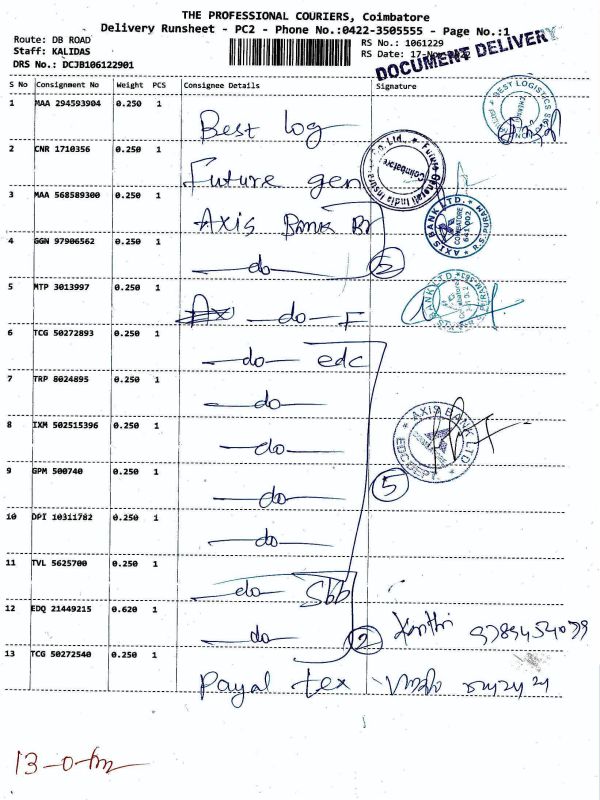 THE PROFESSIONAL COURIERS, Coimbatore
Delivery Runsheet - PC2 - Phone No.:0422-3505555 - Page No.:1
Route: DB ROAD
RS No.: 1061229
Staff: KALIDAS
RS Date: 17-Nov
DRS No.: DCJB106122901
DOCUMENT DELIVERY
S No Consignment No Weight PCS Consignee Details Signature
1 MAA 294593904 0.250 1 Best log
2 CNR 1710356 0.250 1 Future gen
3 MAA 568589300 0.250 1 Axis Bank Br
4 GGN 97906562 0.250 1 —do— 2
5 MTP 3013997 0.250 1 —do— F
6 TCG 50272893 0.250 1 —do— edc
7 TRP 8024895 0.250 1 —do—
8 IXM 502515396 0.250 1 —do—
9 GPM 500740 0.250 1 —do— 5
10 DPI 10311782 0.250 1 —do—
11 TVL 5625700 0.250 1 —do— Sbb
12 EDQ 21449215 0.620 1 —do— 2
13 TCG 50272540 0.250 1 Payal tex
BEST LOGISTICS
Future Generali India Insurance Co. Ltd.,
Coimbatore
AXIS BANK LTD.
COIMBATORE
BANK LTD
AXIS BANK LTD
13-0-